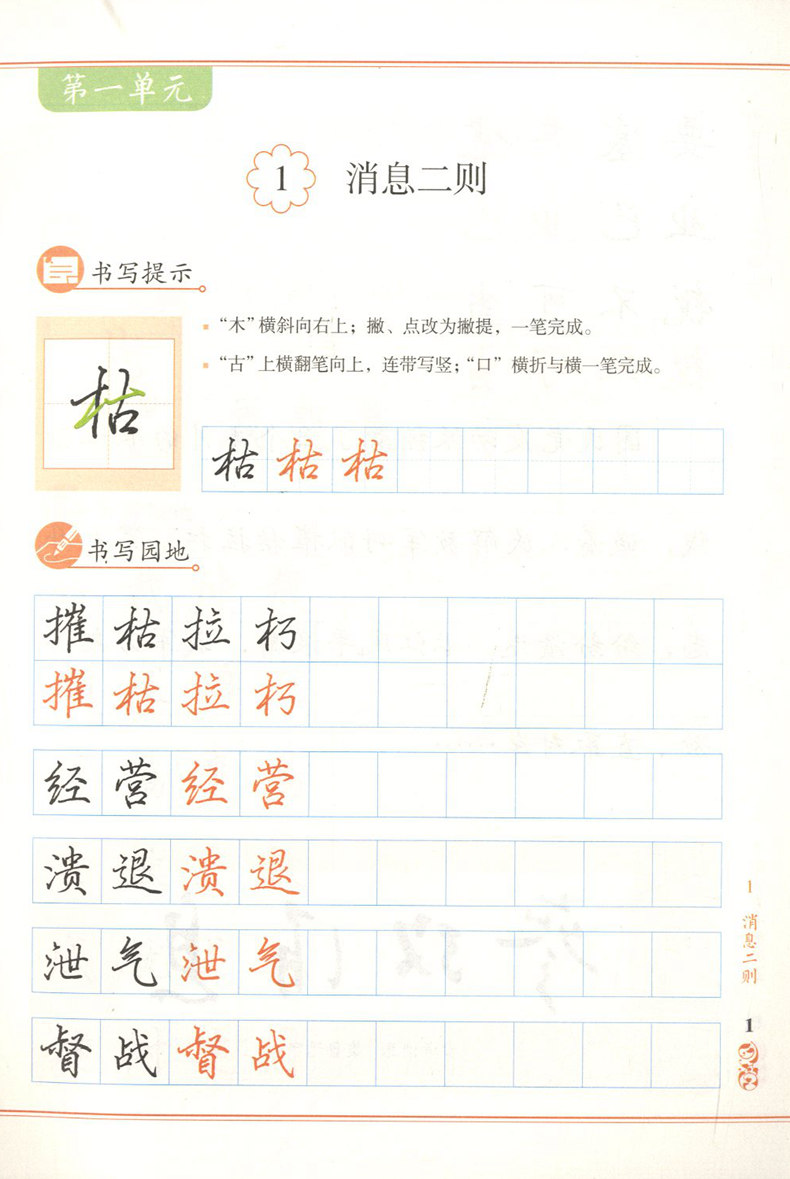 第一单元
1 消息二则
书写提示
“木”横斜向右上；撇、点改为撇提，一笔完成。
“古”上横翻笔向上，连带写竖；“口”横折与横一笔完成。
枯
枯枯枯
书写园地
摧枯拉朽
摧枯拉朽
经营经营
溃退溃退
泄气泄气
督战督战
1 消息二则
1